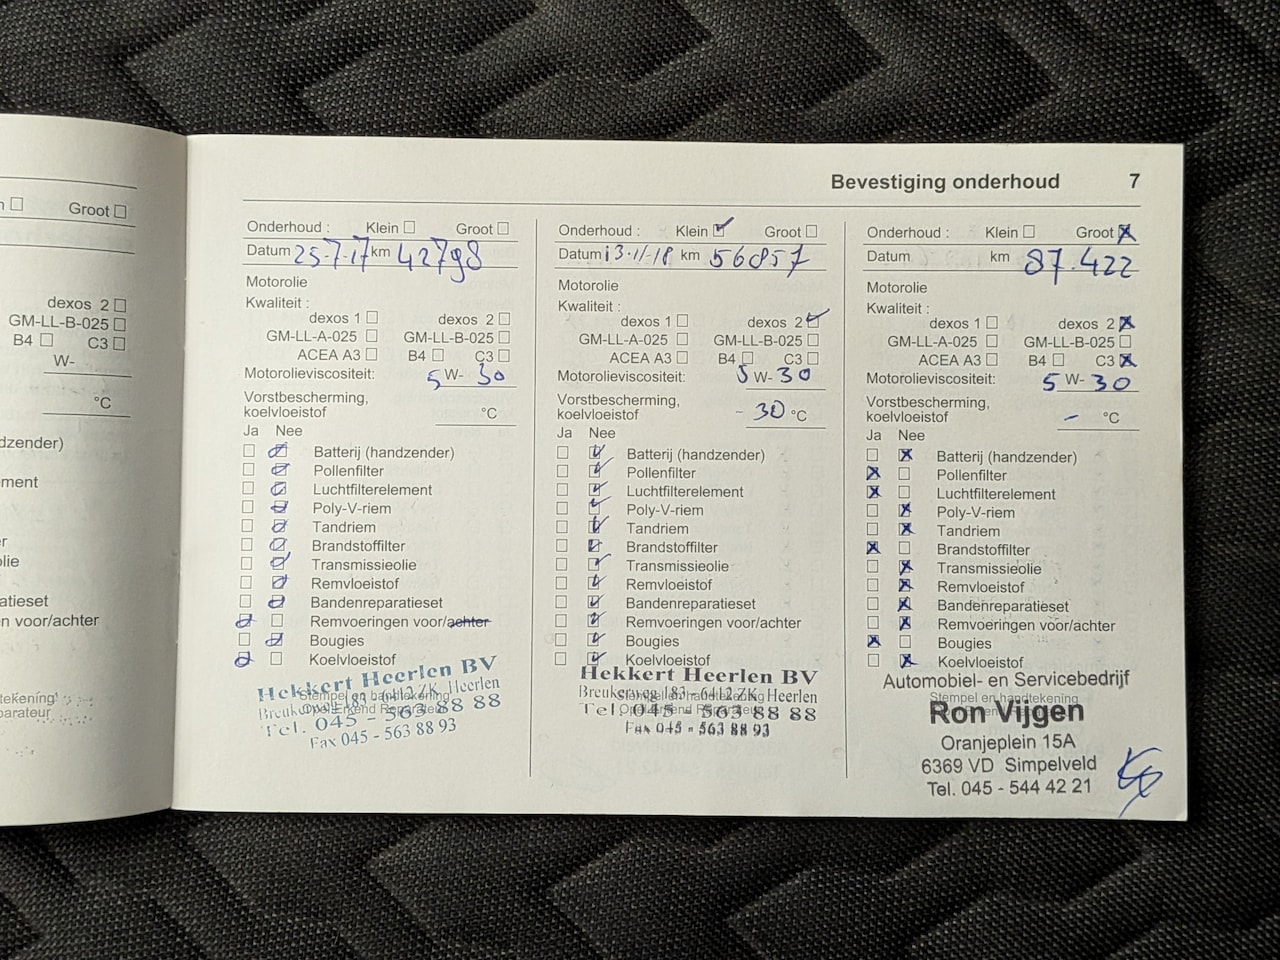 Groot
dexos 2
GM-LL-B-025
B4 C3
W-
°C
dzender)
ment
olie
atieset
n voor/achter
tekening
parateur
Bevestiging onderhoud 7
Onderhoud : Klein Groot
Datum 25-7-17 km 42798
Motorolie
Kwaliteit :
dexos 1 dexos 2
GM-LL-A-025 GM-LL-B-025
ACEA A3 B4 C3
Motorolieviscositeit: 5 W- 30
Vorstbescherming,
koelvloeistof °C
Ja Nee
Batterij (handzender)
Pollenfilter
Luchtfilterelement
Poly-V-riem
Tandriem
Brandstoffilter
Transmissieolie
Remvloeistof
Bandenreparatieset
Remvoeringen voor/achter
Bougies
Koelvloeistof
Stempel en handtekening
Opel Erkend Reparateur
Hekkert Heerlen BV
Breukerweg 183 - 6412 ZK Heerlen
Tel. 045 - 563 88 88
Fax 045 - 563 88 93
Onderhoud : Klein Groot
Datum 13-11-18 km 56857
Motorolie
Kwaliteit :
dexos 1 dexos 2
GM-LL-A-025 GM-LL-B-025
ACEA A3 B4 C3
Motorolieviscositeit: 5 W- 30
Vorstbescherming,
koelvloeistof - 30 °C
Ja Nee
Batterij (handzender)
Pollenfilter
Luchtfilterelement
Poly-V-riem
Tandriem
Brandstoffilter
Transmissieolie
Remvloeistof
Bandenreparatieset
Remvoeringen voor/achter
Bougies
Koelvloeistof
Stempel en handtekening
Opel Erkend Reparateur
Hekkert Heerlen BV
Breukerweg 183 - 6412 ZK Heerlen
Tel. 045 - 563 88 88
Fax 045 - 563 88 93
Onderhoud : Klein Groot
Datum km 87.422
Motorolie
Kwaliteit :
dexos 1 dexos 2
GM-LL-A-025 GM-LL-B-025
ACEA A3 B4 C3
Motorolieviscositeit: 5 W- 30
Vorstbescherming,
koelvloeistof - °C
Ja Nee
Batterij (handzender)
Pollenfilter
Luchtfilterelement
Poly-V-riem
Tandriem
Brandstoffilter
Transmissieolie
Remvloeistof
Bandenreparatieset
Remvoeringen voor/achter
Bougies
Koelvloeistof
Stempel en handtekening
Automobiel- en Servicebedrijf
Ron Vijgen
Oranjeplein 15A
6369 VD Simpelveld
Tel. 045 - 544 42 21